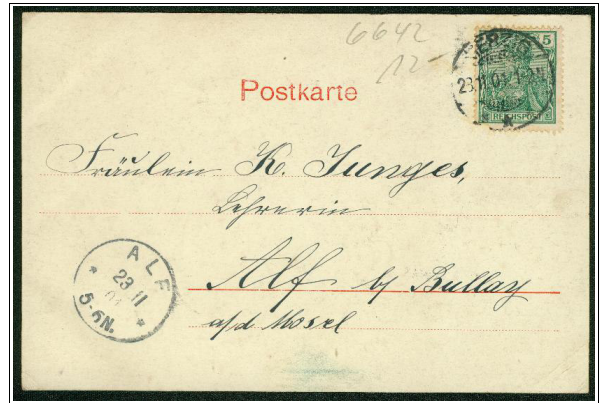 6642
12-
5
REICHSPOST
23.11.01.
Postkarte
Fräulein K. Junges,
Lehrerin
Alf b/ Bullay
a/d Mosel
ALF
23 11
5-6N.